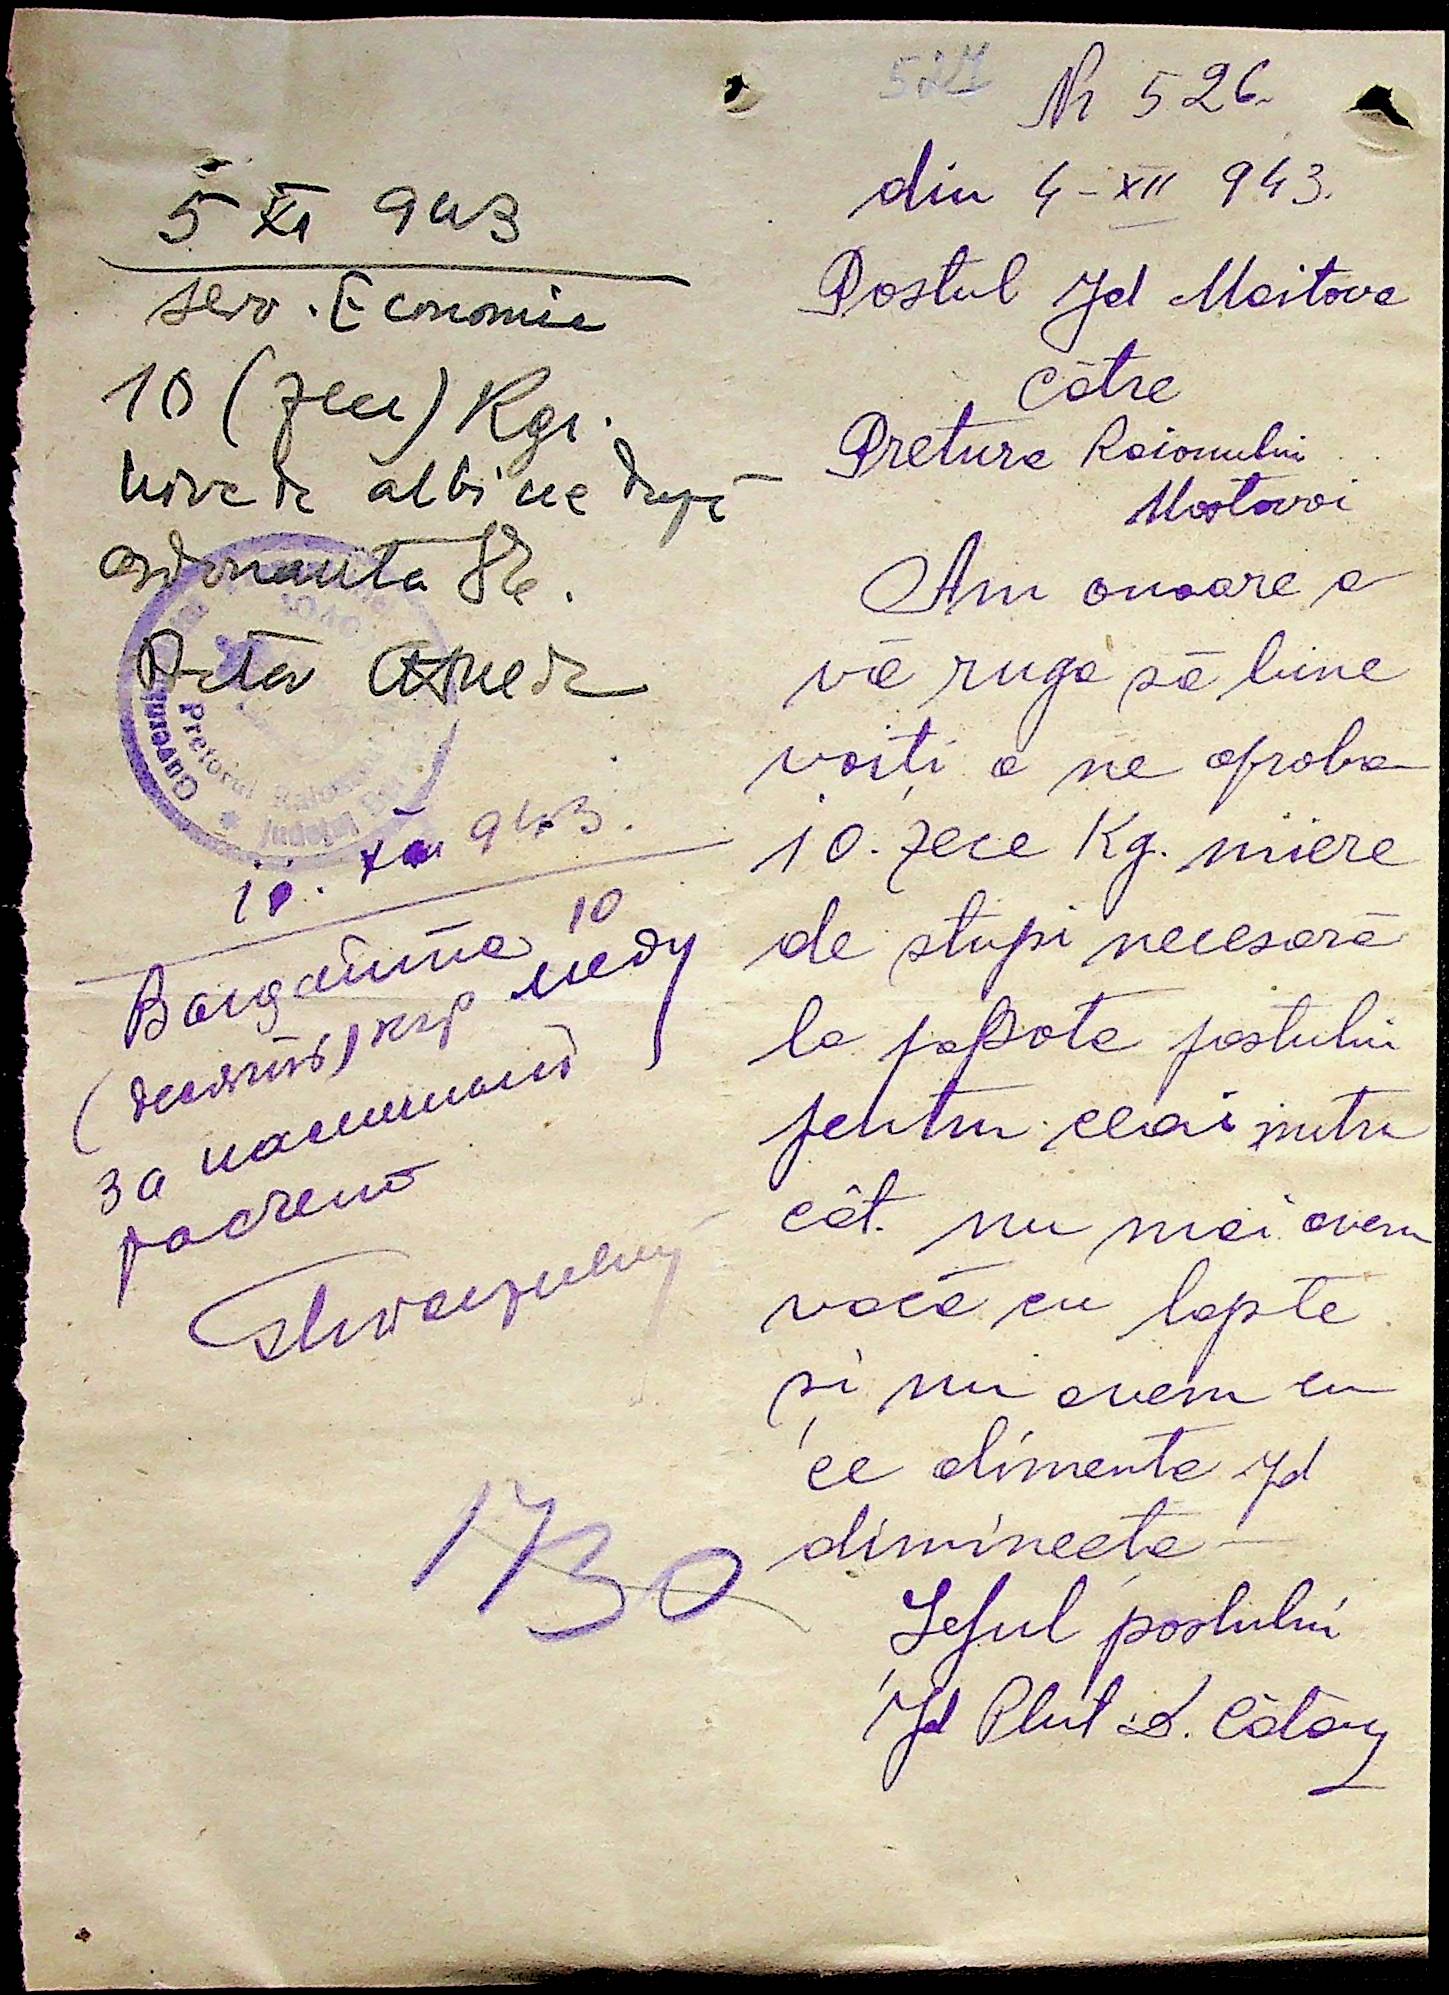 Nr 526
din 4-XII 943.
Postul Jd Moitova
Cătră
Pretura Raionului
Mostovoi
Am onoare a
vă ruga să bine
voiti a ne aproba
10. zece Kg. miere
de stupi necesară
la popota postului
pentru ceai intru
cât. nu mai avem
vacă cu lapte
si nu avem cu
ce alimenta Jd
dimineata
Seful postului
Jd Plut D.
5 XII 943
serv. Economic
10 (zece) Kgr.
miere de albine după
ordonanta
Guvernă
Pretorul Raionului
Judetul
XII 943.
10
(десять) кгр меду
за наличный
1730